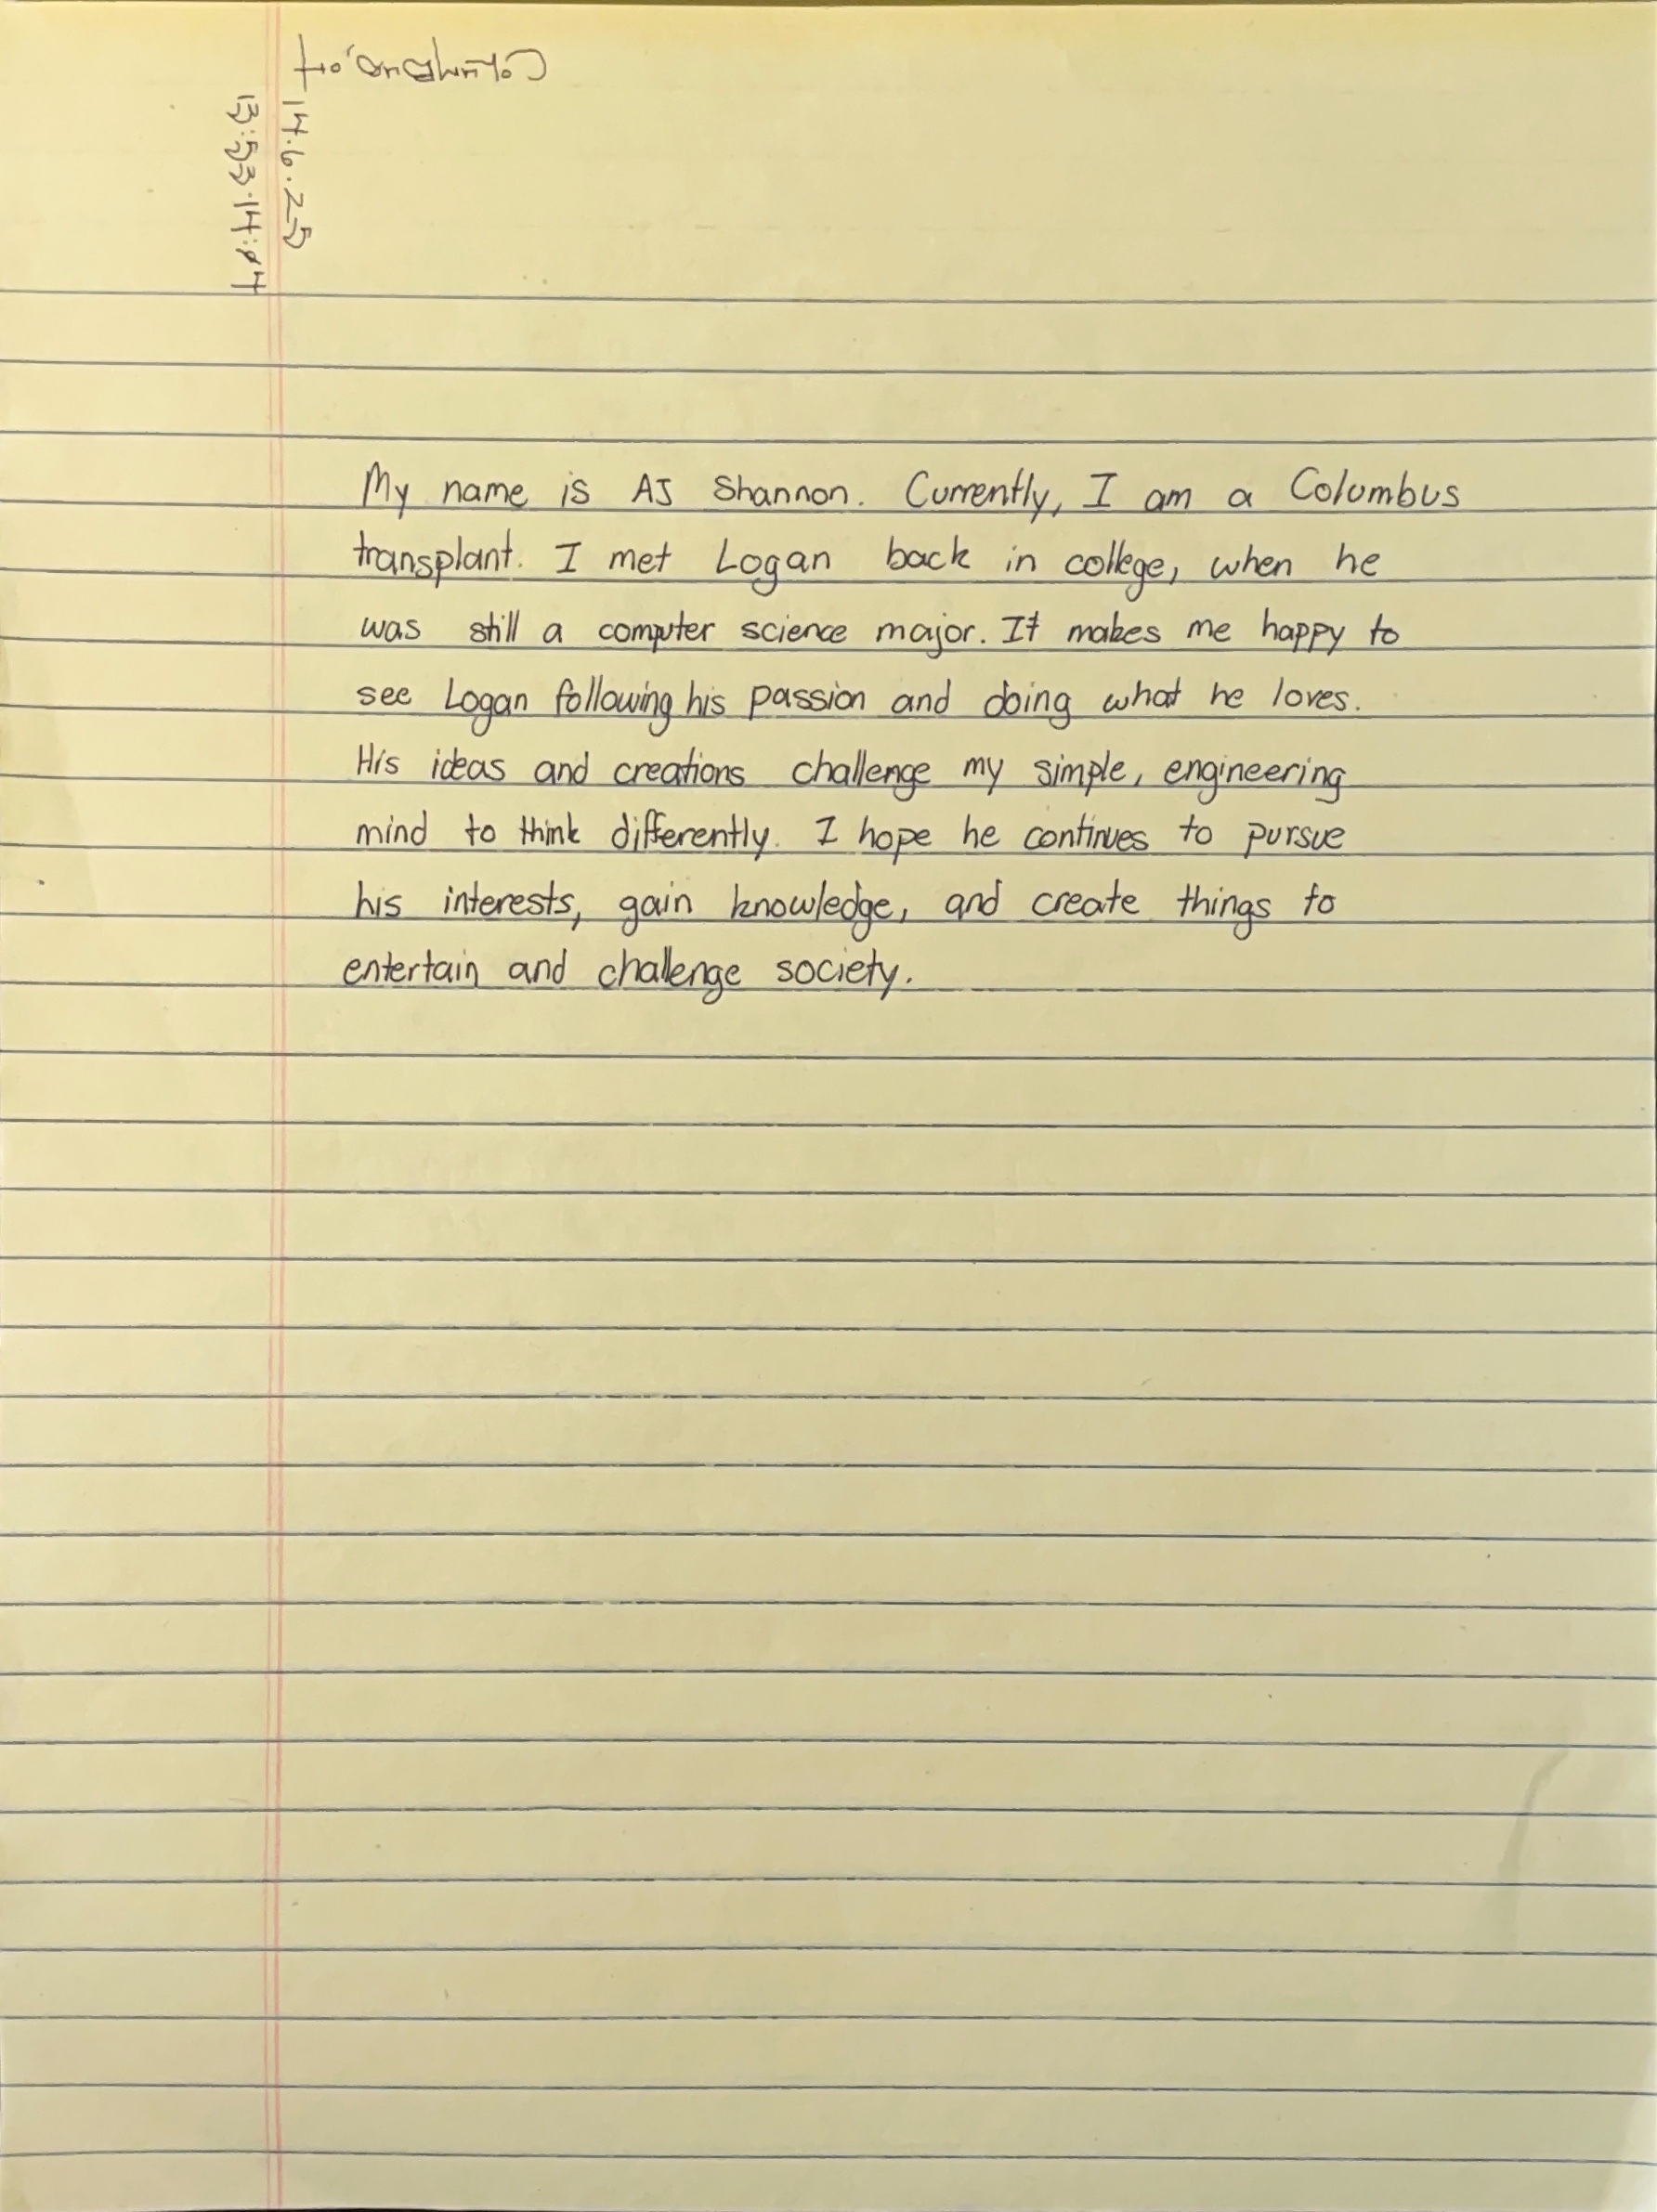 14.6.25
13:53-14:04
My name is AJ Shannon. Currently, I am a Columbus
transplant. I met Logan back in college, when he
was still a computer science major. It makes me happy to
see Logan following his passion and doing what he loves.
His ideas and creations challenge my simple, engineering
mind to think differently. I hope he continues to pursue
his interests, gain knowledge, and create things to
entertain and challenge society.